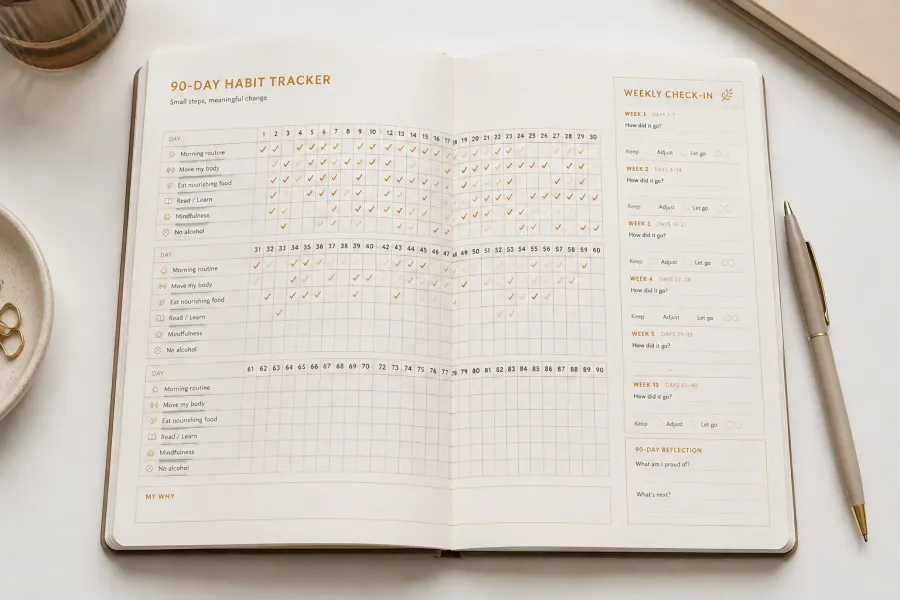 90-DAY HABIT TRACKER
Small steps, meaningful change.
DAY 1 2 3 4 5 6 7 8 9 10 12 13 14 15 16 17 18 19 20 21 22 23 24 25 26 27 28 29 30
Morning routine
Move my body
Eat nourishing food
Read / Learn
Mindfulness
No alcohol
DAY 31 32 33 34 35 36 37 38 39 40 42 43 44 45 46 47 48 49 50 51 52 53 54 55 56 57 58 59 60
Morning routine
Move my body
Eat nourishing food
Read / Learn
Mindfulness
No alcohol
DAY 61 62 63 64 65 66 67 68 69 70 72 73 74 75 76 77 78 79 80 82 83 84 85 86 87 88 89 90
Morning routine
Move my body
Eat nourishing food
Read / Learn
Mindfulness
No alcohol
MY WHY
WEEKLY CHECK-IN
WEEK 1 DAYS 1-7
How did it go?
Keep Adjust Let go
WEEK 2 DAYS 8-14
How did it go?
Keep Adjust Let go
WEEK 3
How did it go?
Keep Adjust Let go
WEEK 4 DAYS 22-28
How did it go?
Keep Adjust Let go
WEEK 5
How did it go?
WEEK 12
How did it go?
Keep Adjust Let go
90-DAY REFLECTION
What am I proud of?
What's next?